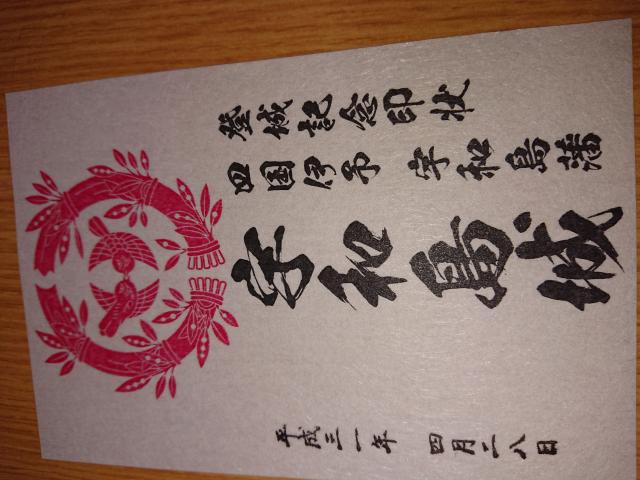 登城記念印状
四国伊予 宇和島藩
宇和島城
平成三一年 四月二八日